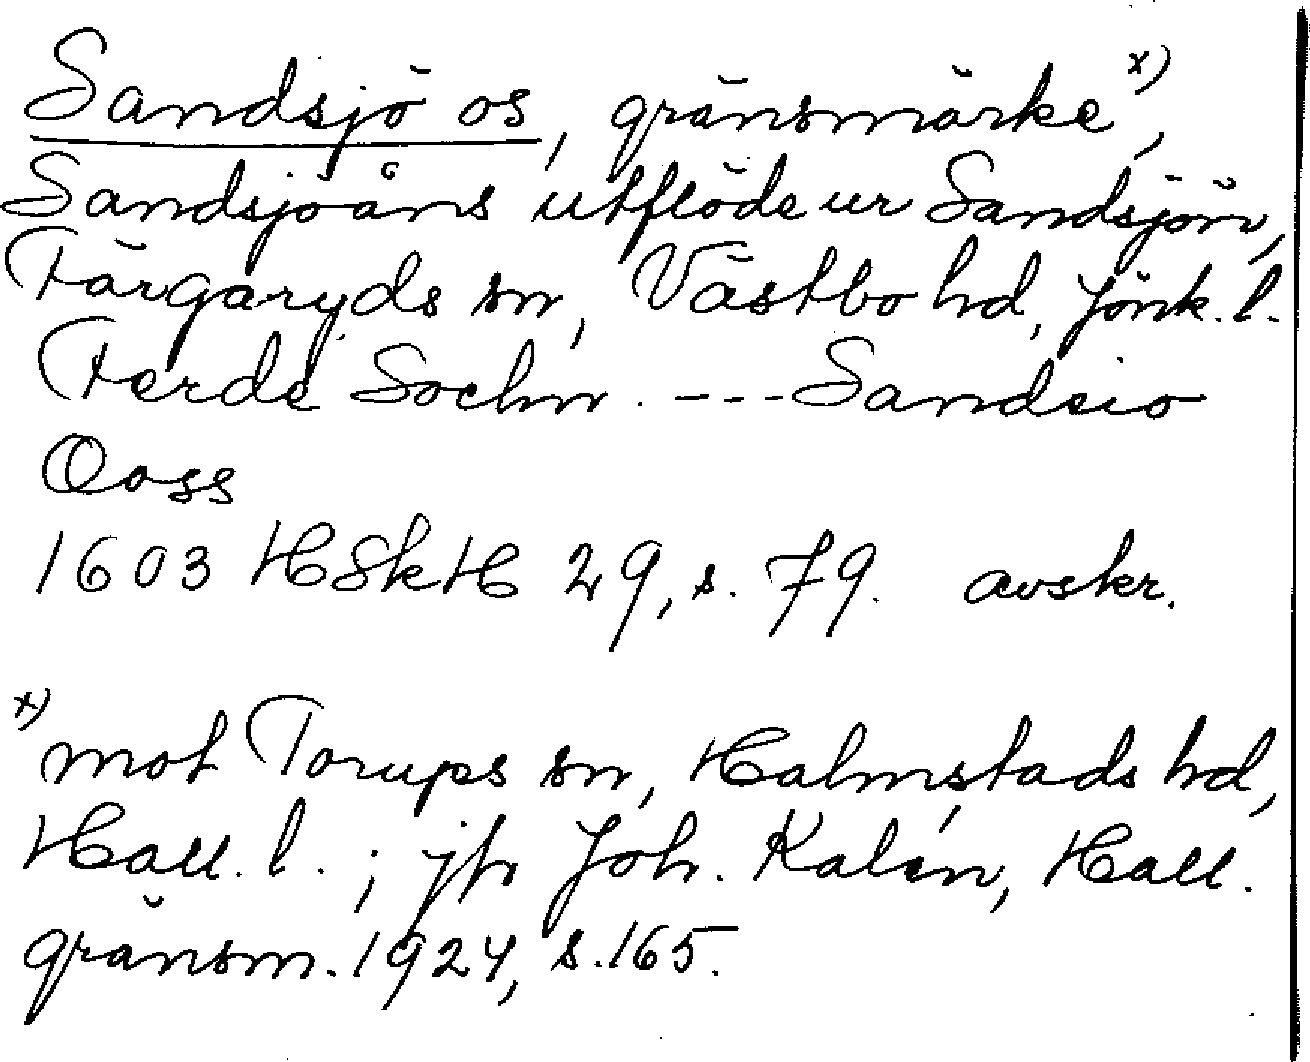 Sandsjö os, gränsmärke x),
Sandsjöåns utflöde ur Sandsjön,
Färgaryds sn, Västbo hd, Jönk. l.
Ferde Sochn. --- Sandsio
Ooss
1603 HSkH 29, s. 79. avskr.
x) mot Torups sn, Halmstads hd,
Hall. l. ; jfr Joh. Kalén, Hall.
gränsm. 1924, s. 165.